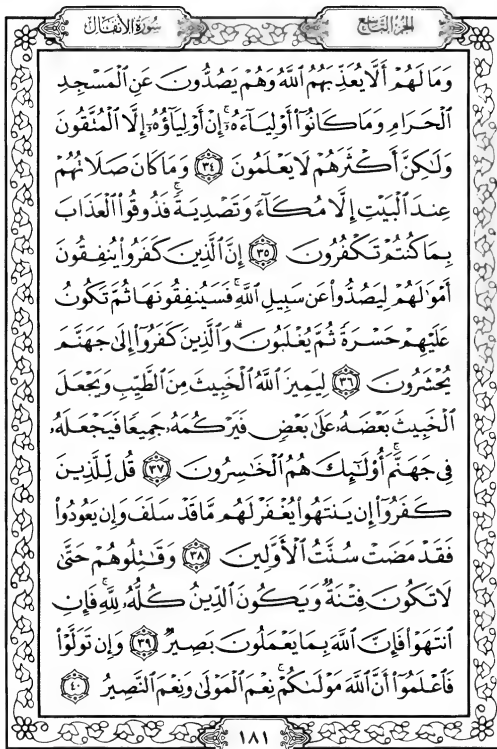 الجزء التاسع
سورة الأنفال
وَمَا لَهُمْ أَلَّا يُعَذِّبَهُمُ اللَّهُ وَهُمْ يَصُدُّونَ عَنِ الْمَسْجِدِ
الْحَرَامِ وَمَا كَانُوا أَوْلِيَاءَهُ ۚ إِنْ أَوْلِيَاؤُهُ إِلَّا الْمُتَّقُونَ
وَلَٰكِنَّ أَكْثَرَهُمْ لَا يَعْلَمُونَ ٣٤ وَمَا كَانَ صَلَاتُهُمْ
عِندَ الْبَيْتِ إِلَّا مُكَاءً وَتَصْدِيَةً ۚ فَذُوقُوا الْعَذَابَ
بِمَا كُنتُمْ تَكْفُرُونَ ٣٥ إِنَّ الَّذِينَ كَفَرُوا يُنفِقُونَ
أَمْوَالَهُمْ لِيَصُدُّوا عَن سَبِيلِ اللَّهِ ۚ فَسَيُنفِقُونَهَا ثُمَّ تَكُونُ
عَلَيْهِمْ حَسْرَةً ثُمَّ يُغْلَبُونَ ۗ وَالَّذِينَ كَفَرُوا إِلَىٰ جَهَنَّمَ
يُحْشَرُونَ ٣٦ لِيَمِيزَ اللَّهُ الْخَبِيثَ مِنَ الطَّيِّبِ وَيَجْعَلَ
الْخَبِيثَ بَعْضَهُ عَلَىٰ بَعْضٍ فَيَرْكُمَهُ جَمِيعًا فَيَجْعَلَهُ
فِي جَهَنَّمَ ۚ أُولَٰئِكَ هُمُ الْخَاسِرُونَ ٣٧ قُل لِّلَّذِينَ
كَفَرُوا إِن يَنتَهُوا يُغْفَرْ لَهُم مَّا قَدْ سَلَفَ وَإِن يَعُودُوا
فَقَدْ مَضَتْ سُنَّتُ الْأَوَّلِينَ ٣٨ وَقَاتِلُوهُمْ حَتَّىٰ
لَا تَكُونَ فِتْنَةٌ وَيَكُونَ الدِّينُ كُلُّهُ لِلَّهِ ۚ فَإِنِ
انتَهَوْا فَإِنَّ اللَّهَ بِمَا يَعْمَلُونَ بَصِيرٌ ٣٩ وَإِن تَوَلَّوْا
فَاعْلَمُوا أَنَّ اللَّهَ مَوْلَاكُمْ ۚ نِعْمَ الْمَوْلَىٰ وَنِعْمَ النَّصِيرُ ٤٠
١٨١